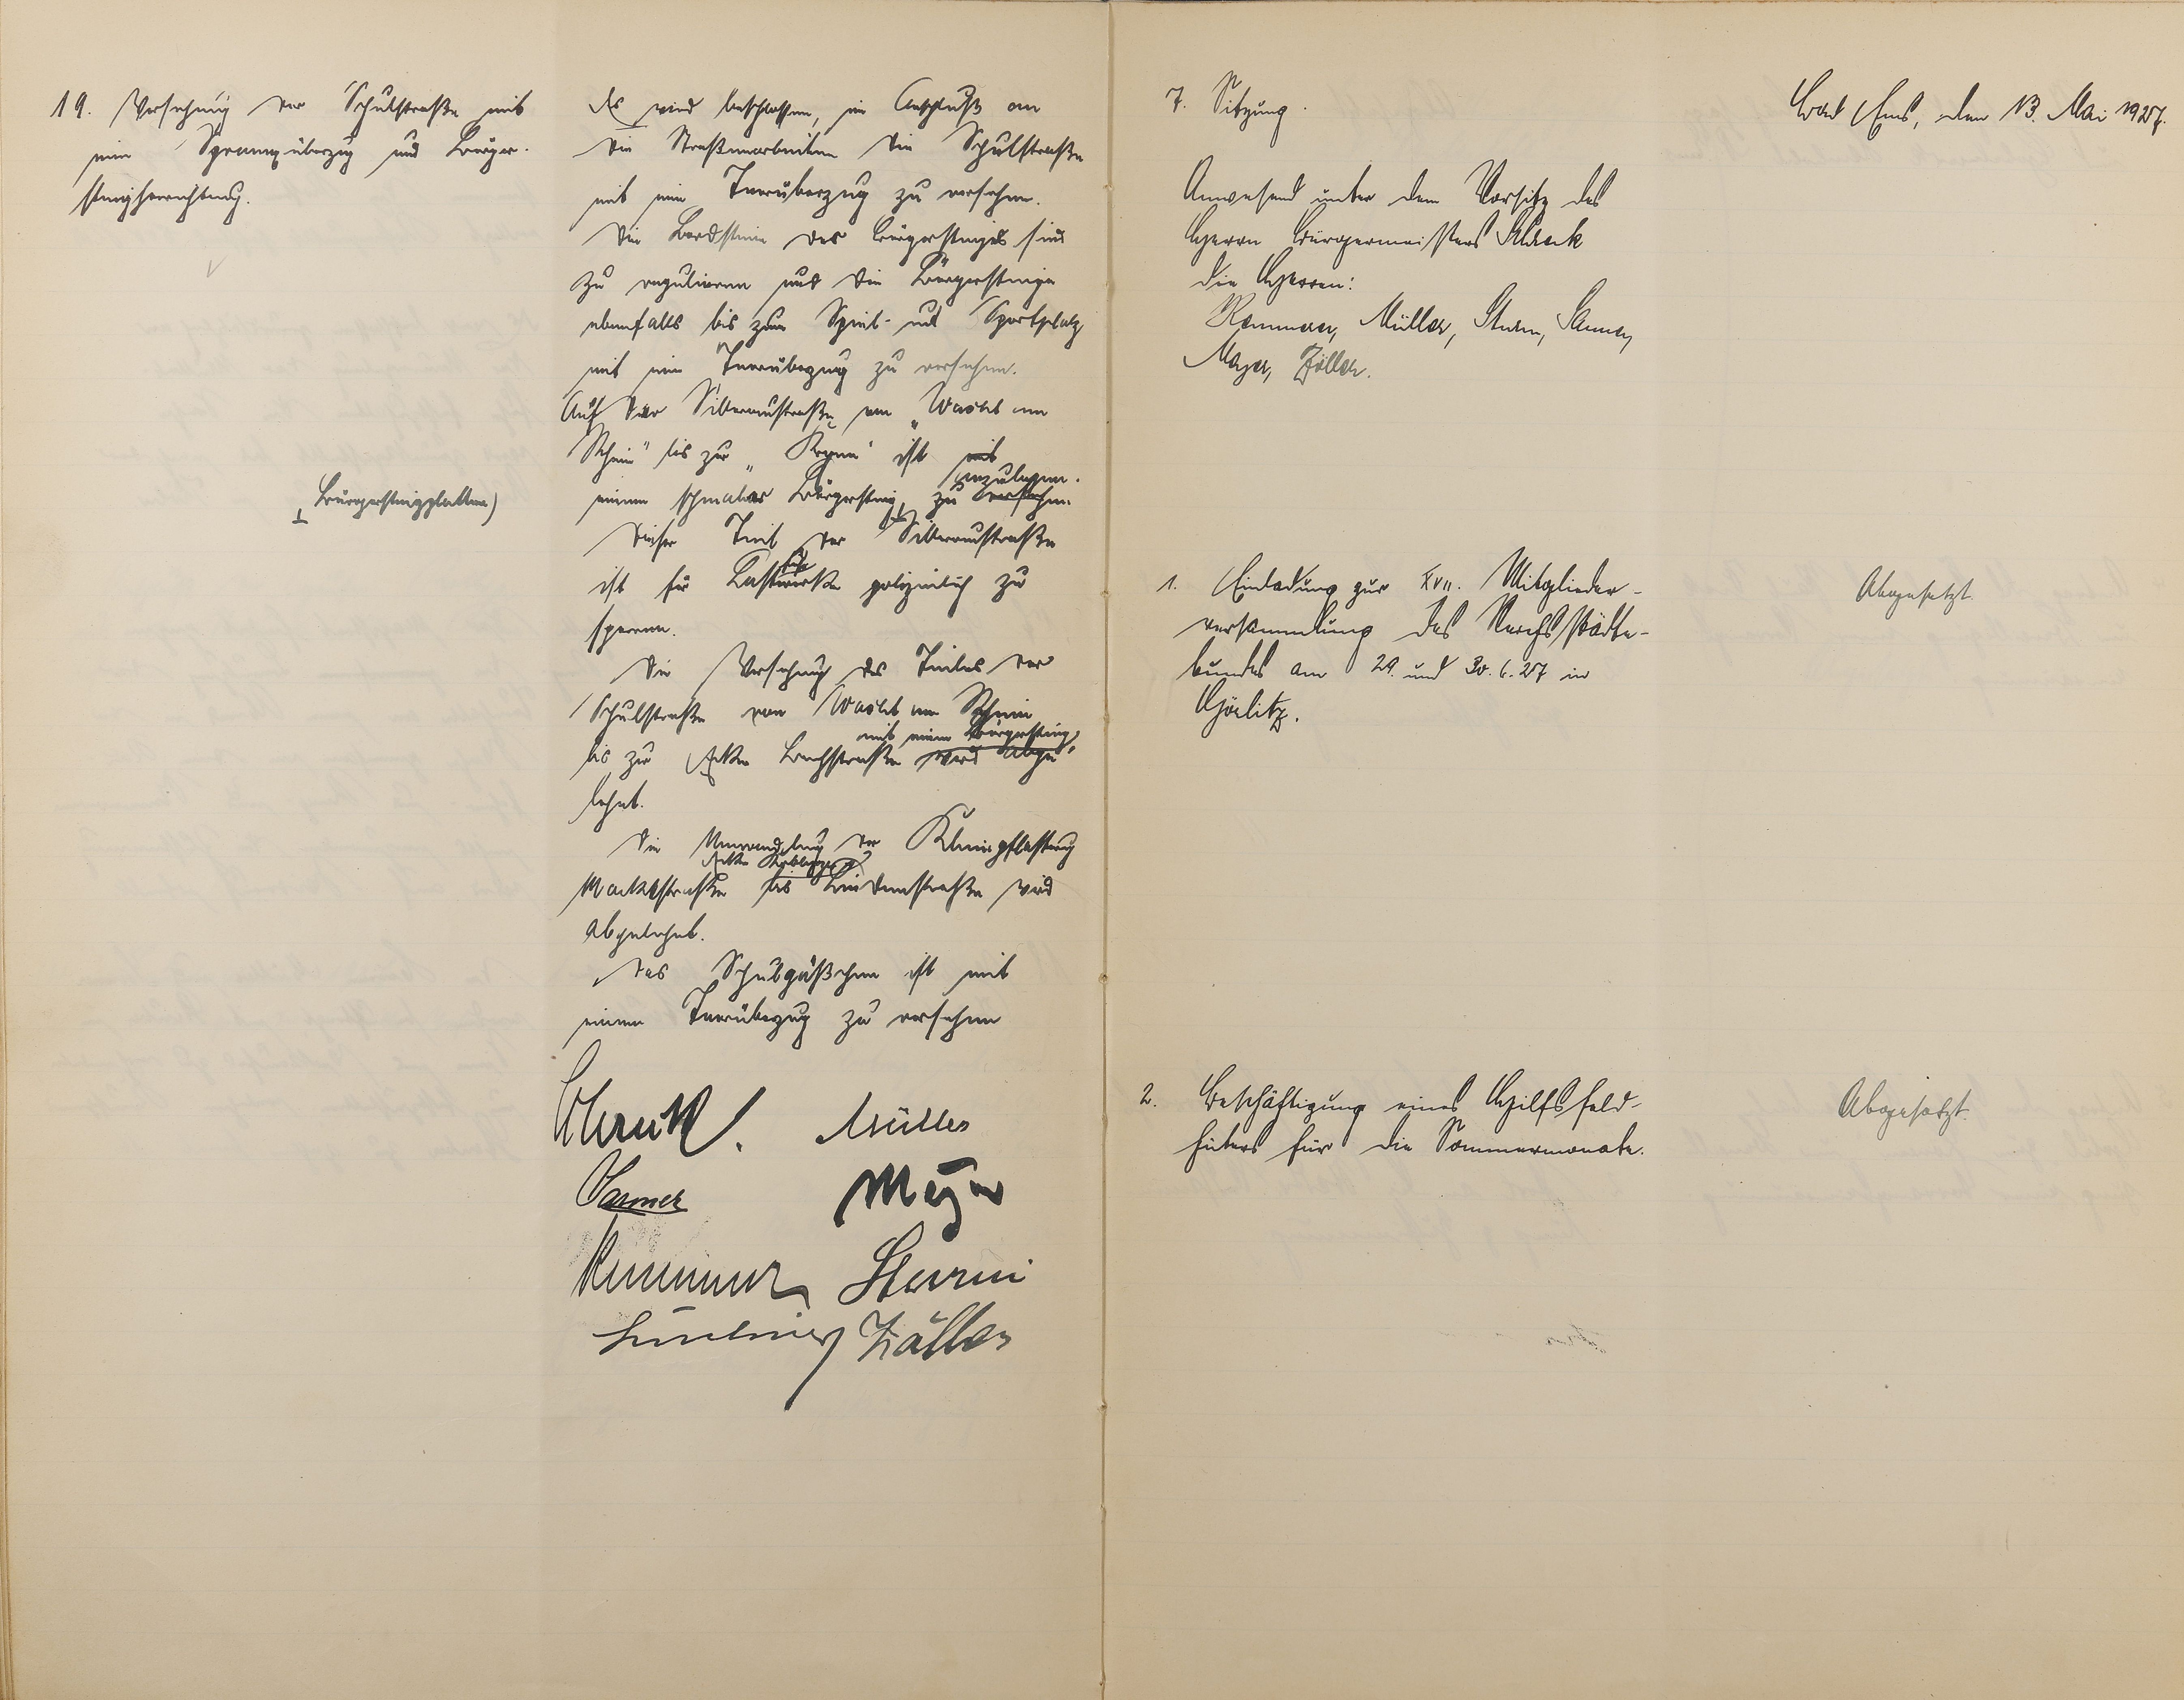 19. Versehung der Schulstraße mit
ein Spramexüberzug und Bürger-
steigherrichtung.
Bürgersteigplatten)
Es wird beschlossen, im Anschluß an
die Straßenarbeiten die Schulstraße
mit ein Teerüberzug zu versehen.
Die Bordsteine des Bürgersteiges sind
zu regulieren und die Bürgersteige
ebenfalls bis zum Spiel- und Sportplatz
mit ein Teerüberzug zu versehen.
Auf der Silberaustraße von "Wacht am
Rhein" bis zur "Krone" ist mit
anzulegen.
einen schmaler Bürgersteig zu versehen.
Dieser Teil der Silberaustraße
ist für Last polizeilich zu
sperren.
Die Versehung des Teiles der
Schulstraße von Wacht am Rhein
mit einem Bürgersteig
bis zur Ecke Bachstraße wird abge-
lehnt.
Die Umwandlung der Kleinpflasterung
Ecke
Marktstraße bis Lindenstraße wird
abgelehnt.
Das Schulgäßchen ist mit
einem Teerüberzug zu versehen
Schreck. Müller
Sarner Meyer
Kemmerer Sturm
Zöller
7. Sitzung.
Bad Ems, den 13. Mai 1927.
Anwesend unter dem Vorsitz des
Herrn Bürgermeisters Schreck
die Herren:
Müller, Sturm,
Meyer, Zöller.
1. Einladung zur XVII. Mitglieder-
versammlung des Reichsstädte-
bundes am 29. und 30.6.27 in
Görlitz.
Abgesetzt.
2. Beschäftigung eines Hilfsfeld-
hüters für die Sommermonate.
Abgesetzt.